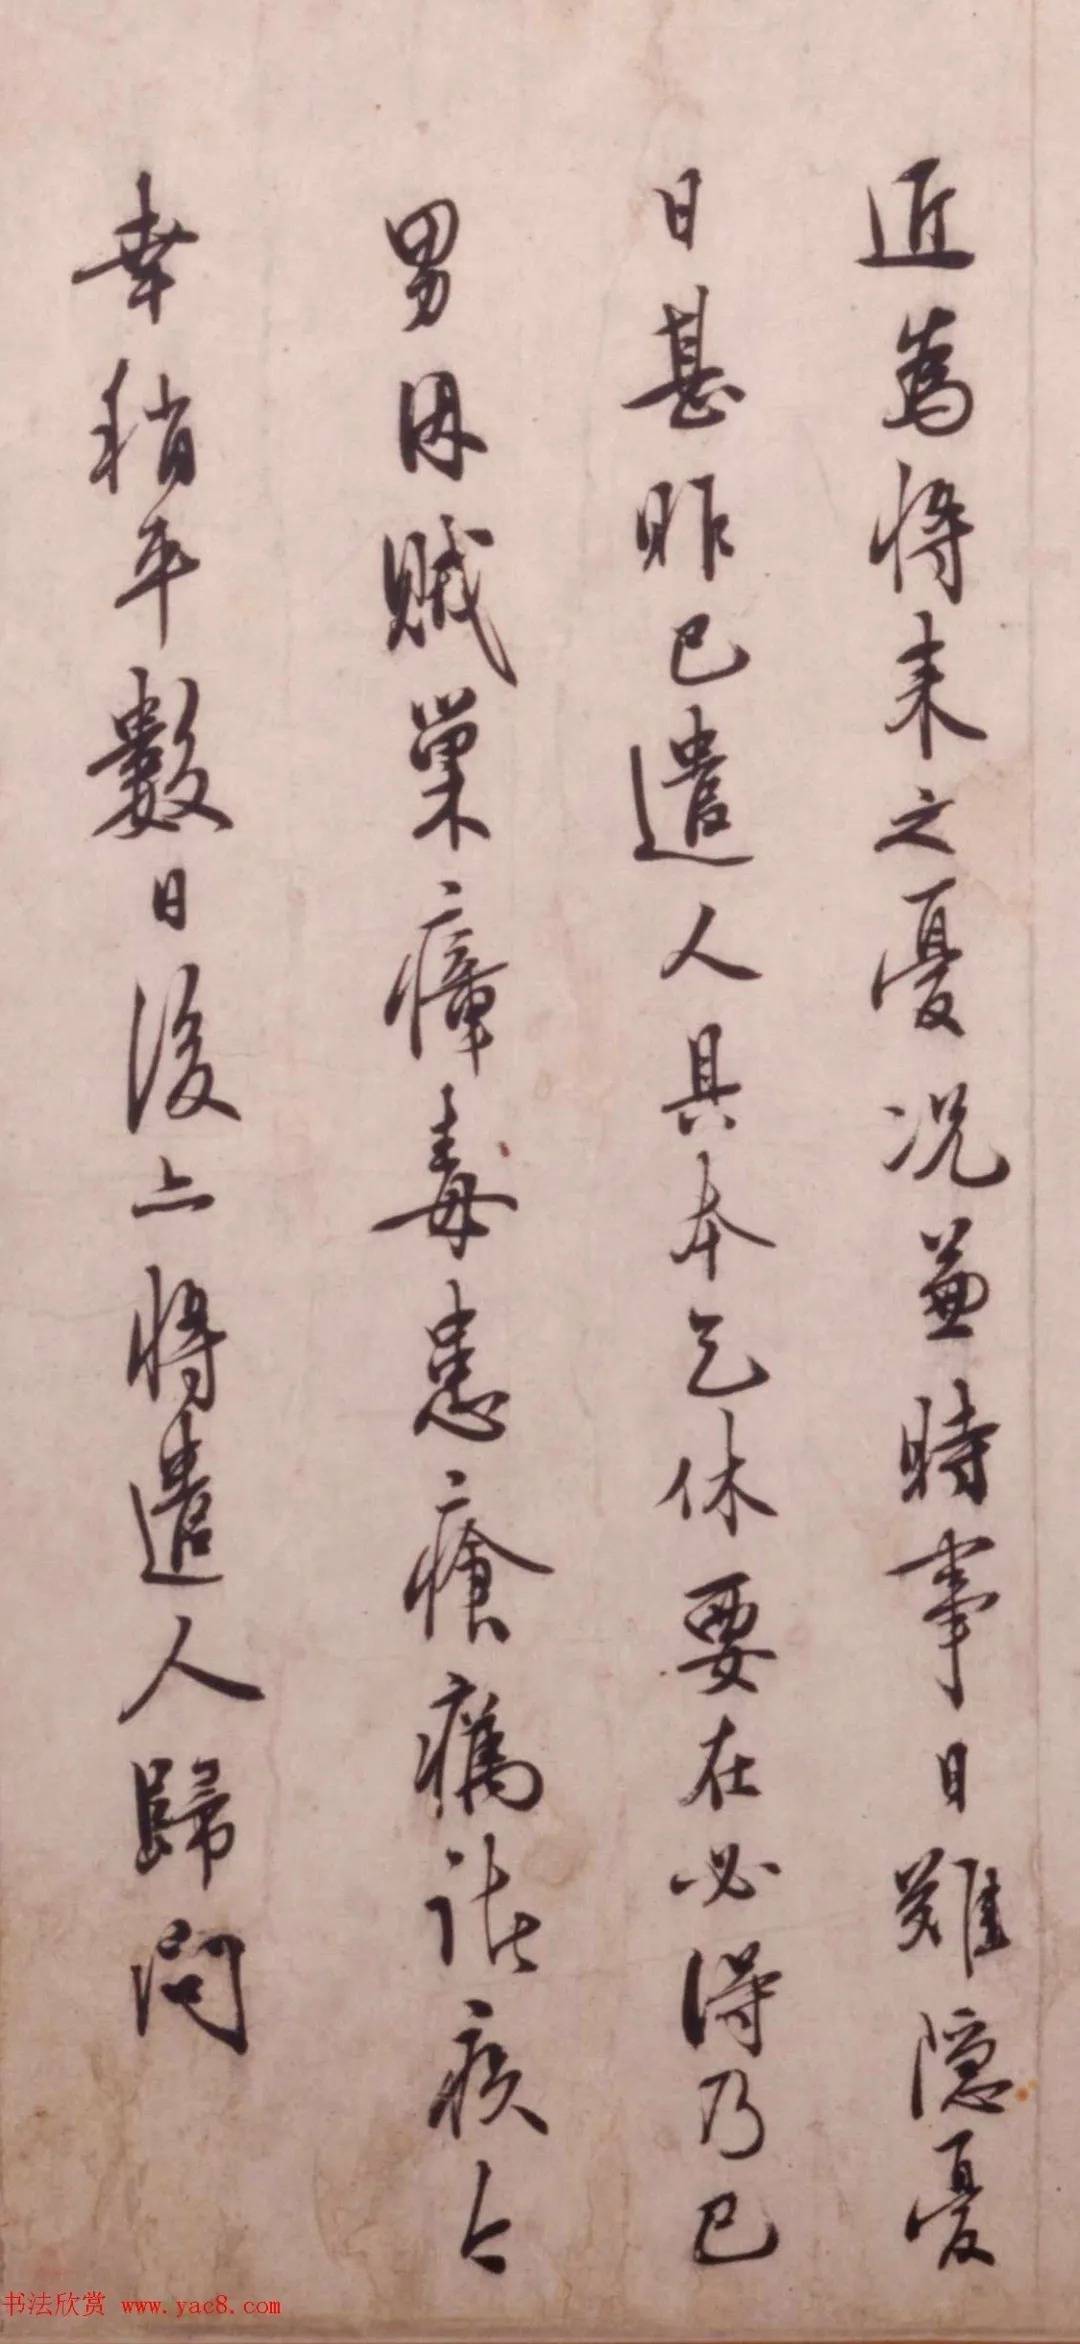 近為将来之憂况兼時事日難隱憂
日甚昨已遣人具本乞休要在必得乃已
男因賊巢瘴毒患瘡癘諸疾今
幸稍平數日後亦将遣人歸問
书法欣赏 www.yac8.com